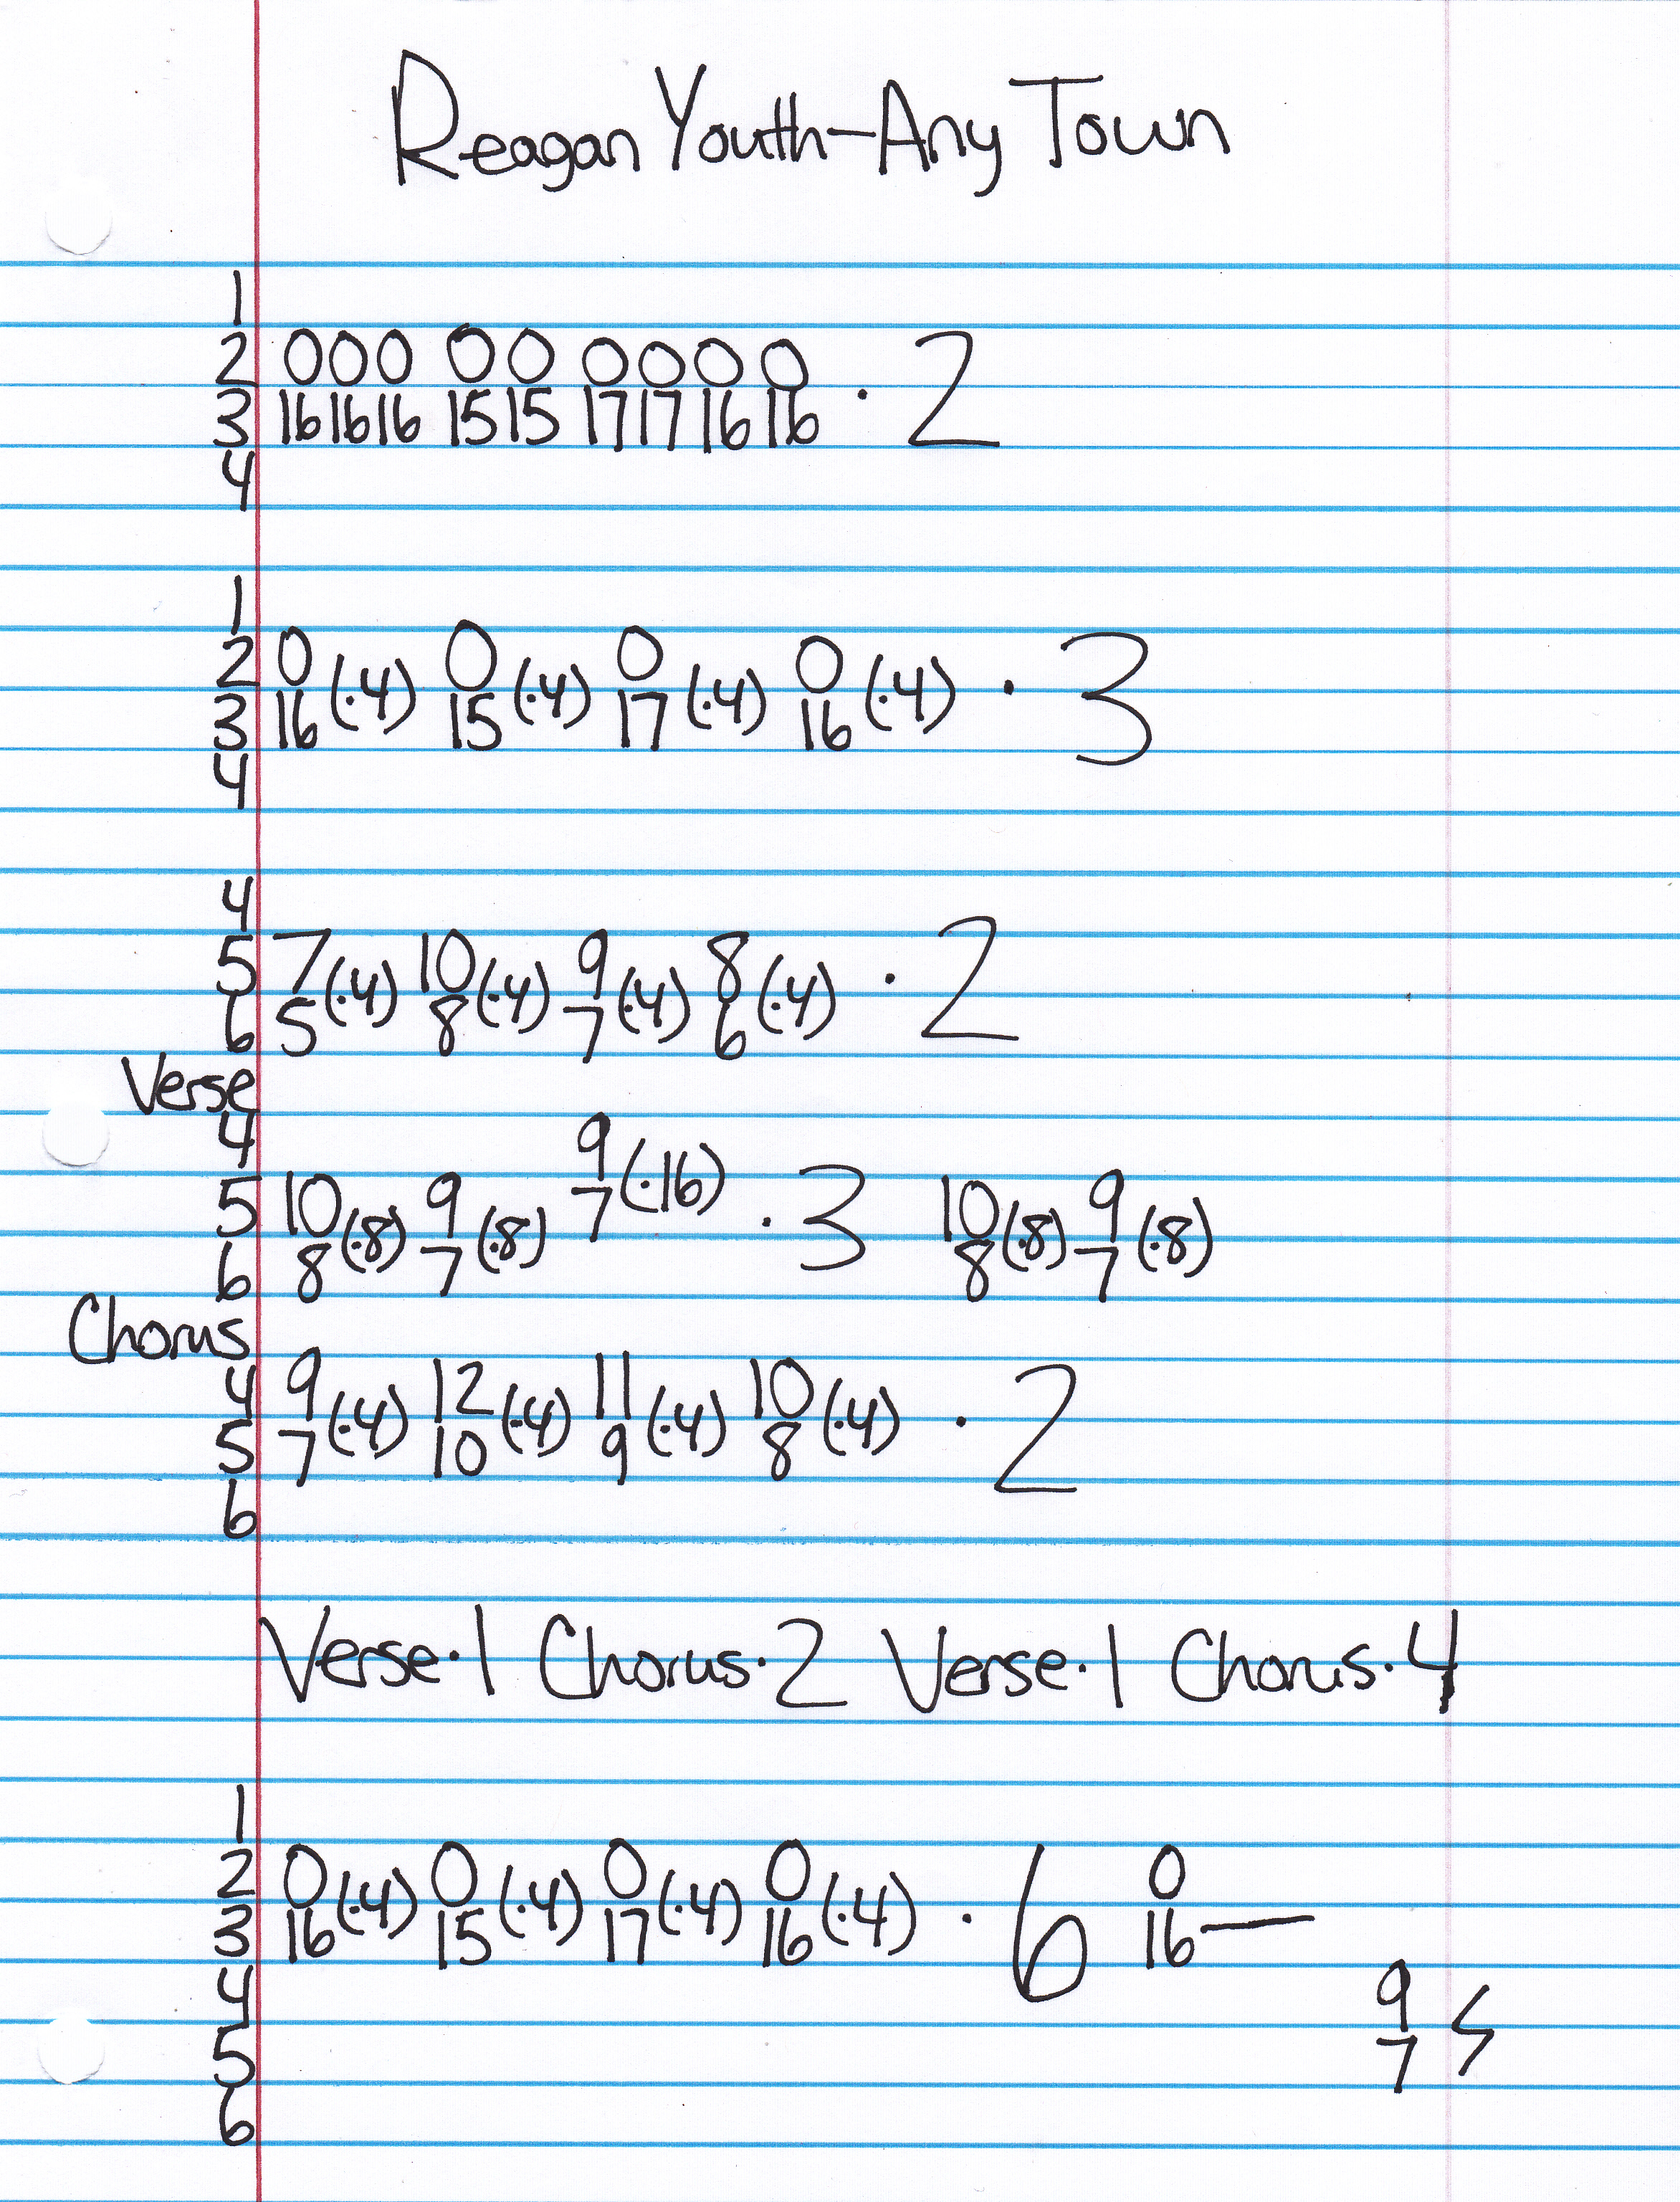 Reagan Youth-Any Town
1
2 0 0 0 0 0 0 0 0 0 · 2
3 16 16 16 15 15 17 17 16 16
4
1
2 0 (·4) 0 (·4) 0 (·4) 0 (·4) · 3
3 16 15 17 16
4
4
5 7 (·4) 10 (·4) 9 (·4) 8 (·4) · 2
6 5 8 7 6
Verse
4 9 (·16)
5 10 (·8) 9 (·8) 7 · 3 10 (·8) 9 (·8)
6 8 7 8 7
Chorus
4 9 (·4) 12 (·4) 11 (·4) 10 (·4) · 2
5 7 10 9 8
6
Verse·1 Chorus·2 Verse·1 Chorus·4
1
2 0 (·4) 0 (·4) 0 (·4) 0 (·4) · 6 0
3 16 15 17 16 16—
4 9
5 7
6